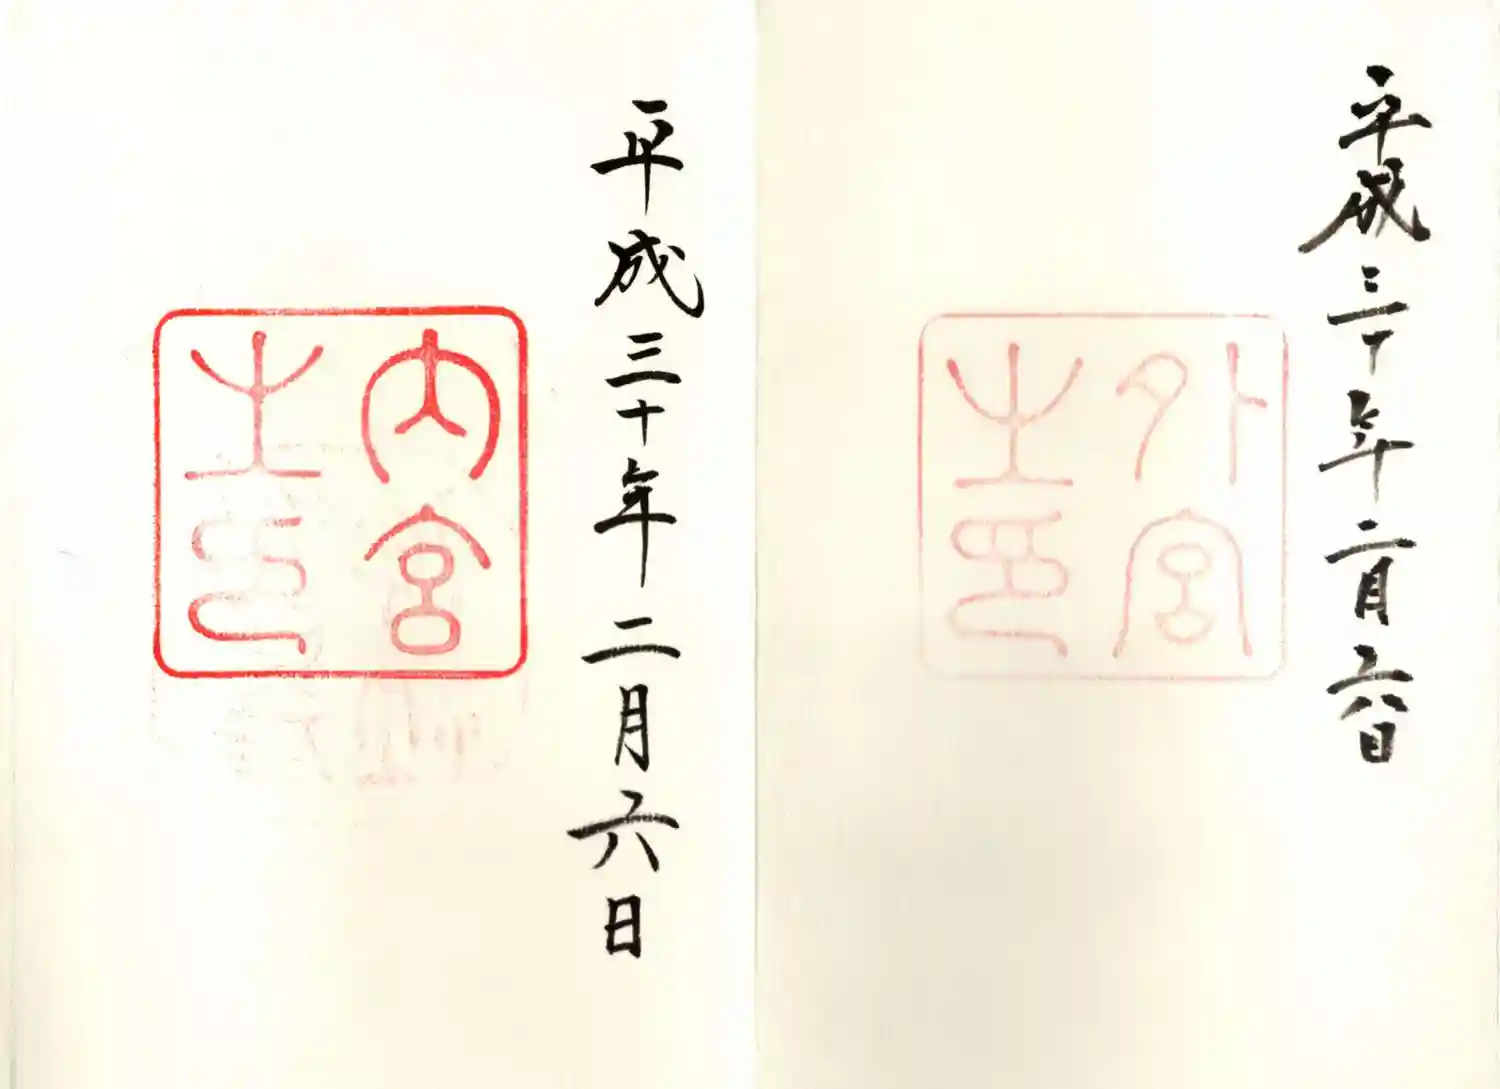 平成三十年二月六日
外宮
之印
平成三十年二月六日
内宮
之印